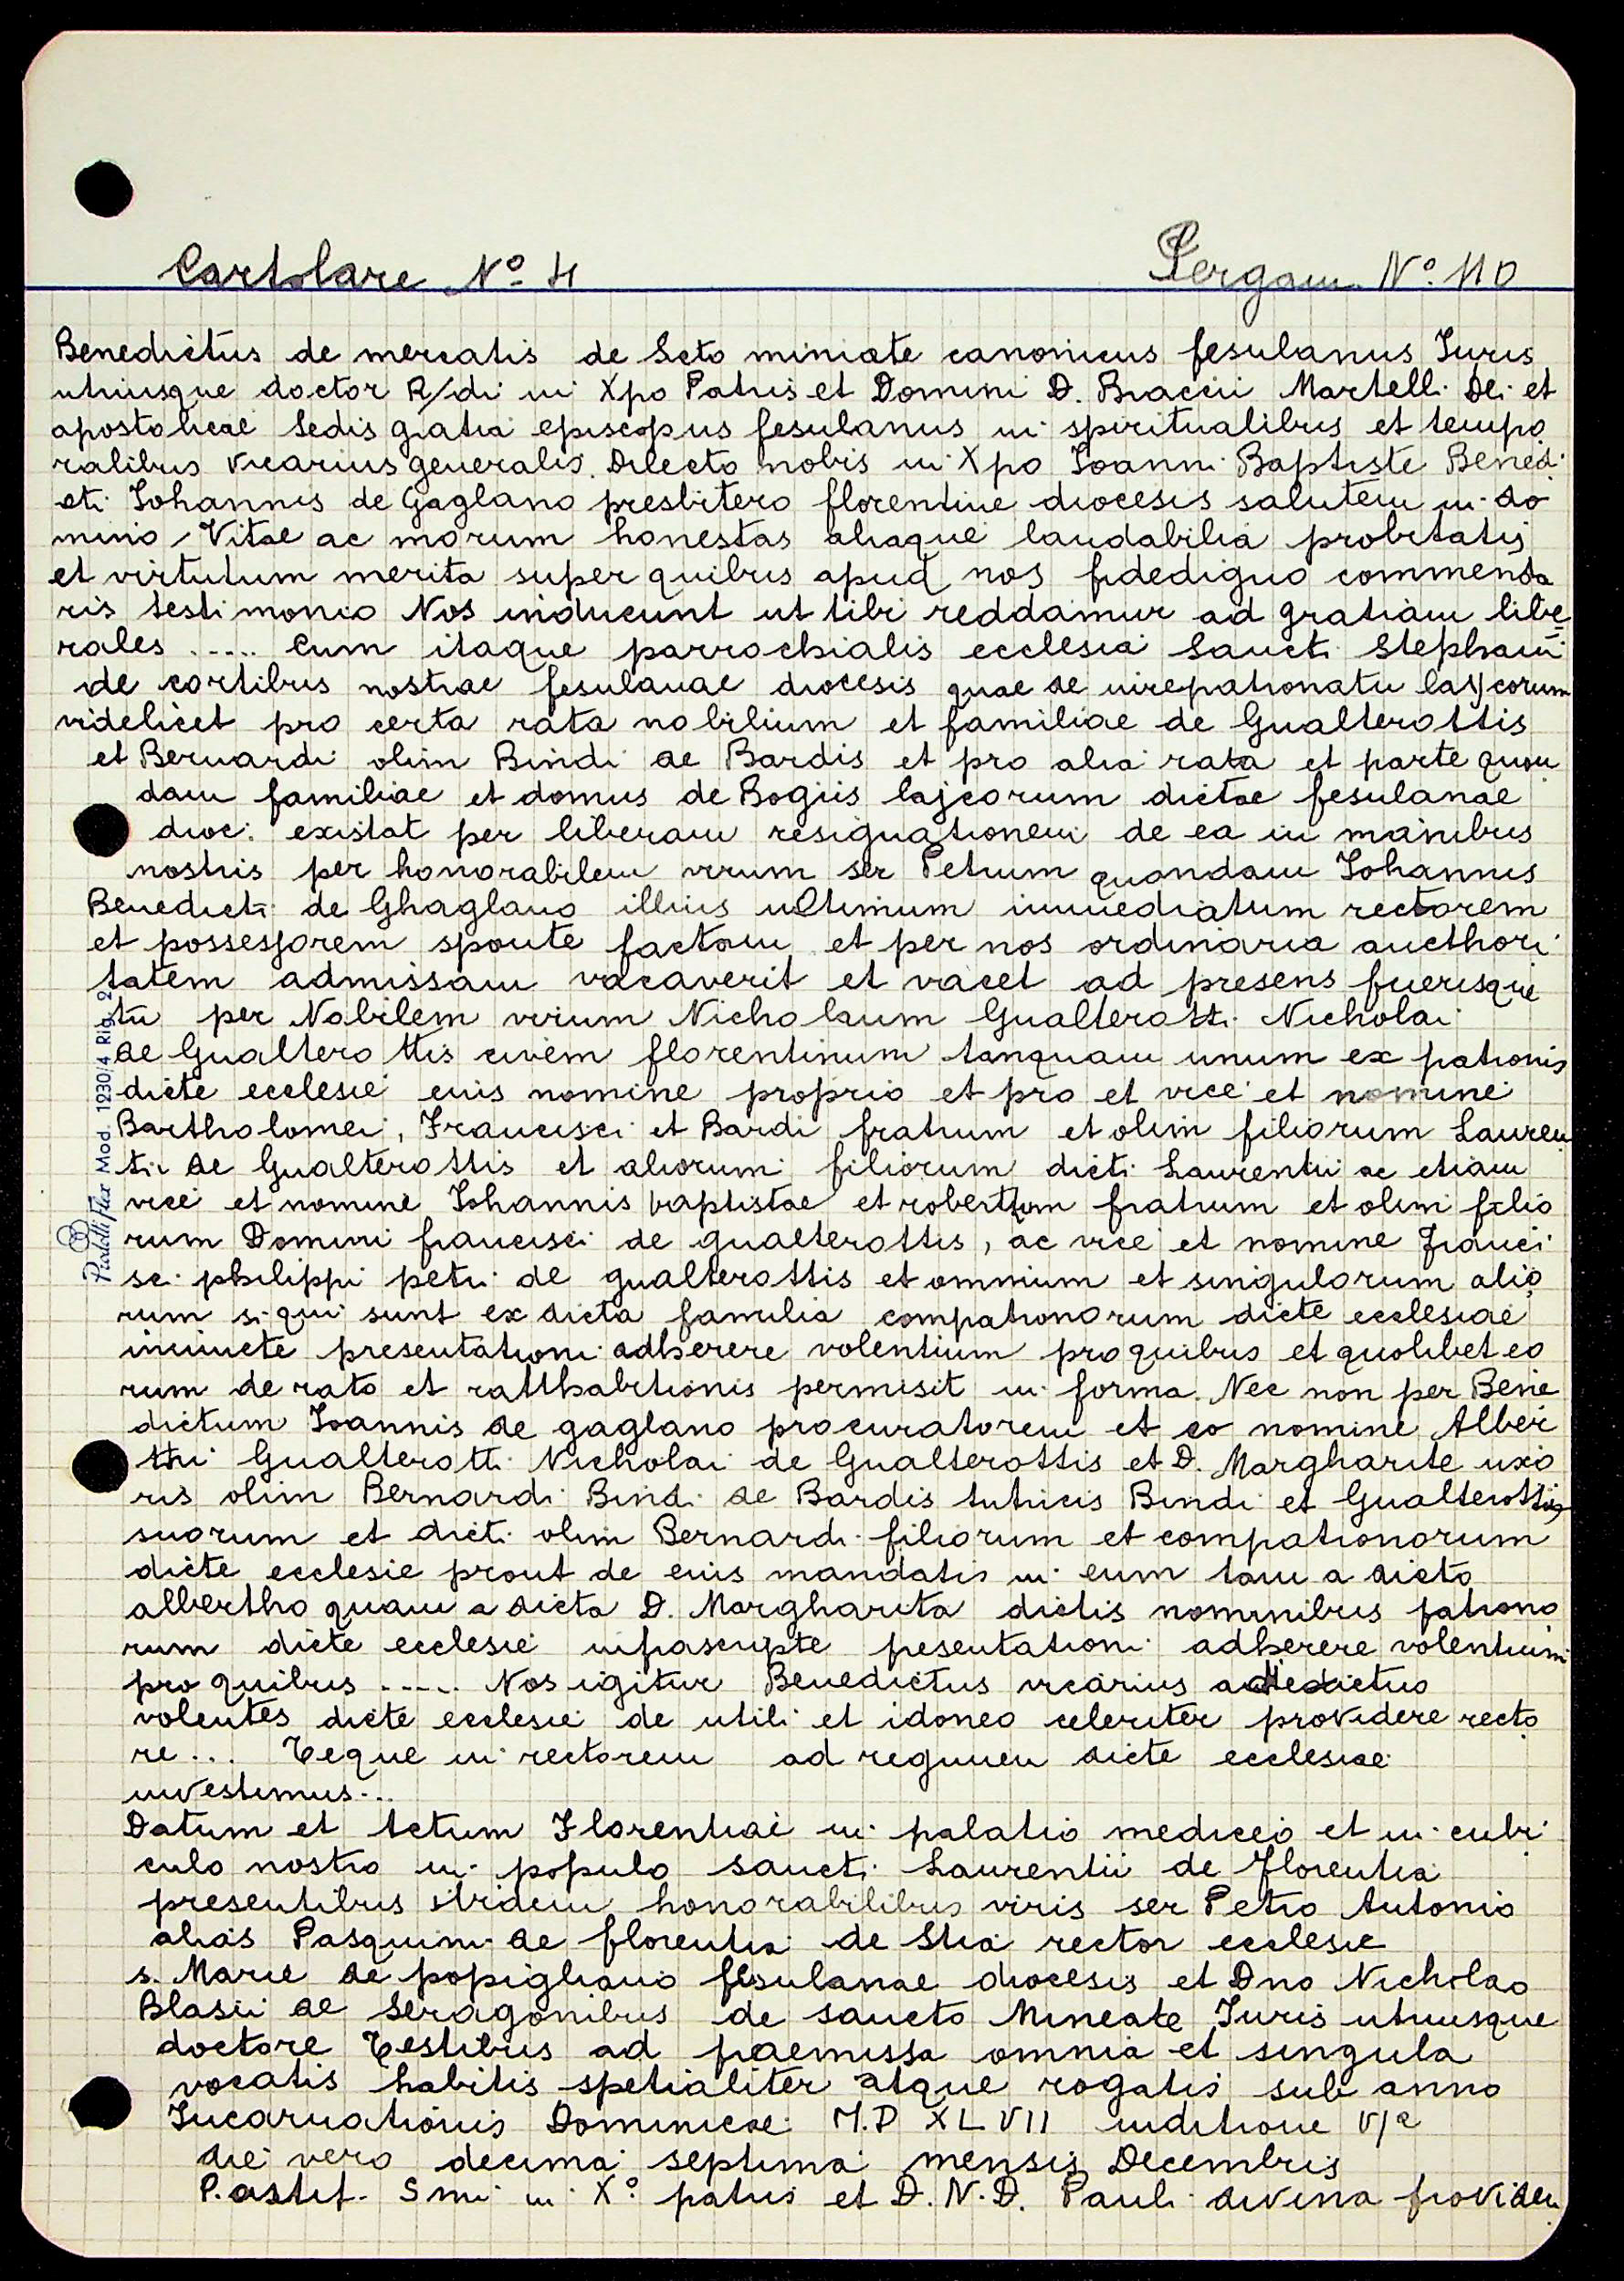 Cartolare Nº 4 Pergam. Nº. 110
Benedictus de mercatis de Scto miniate canonicus fesulanus Juris
utriusque doctor R/di in Xpo Patris et Domini D. Braccii Martelli Dei et
apostolicae Sedis gratia episcopus fesulanus in spiritualibus et tempo
ralibus vicarius generalis. Dilecto nobis in Xpo Joanni Baptiste Benedi
cti Johannis de Gaglano presbitero florentine diocesis salutem in do
mino, Vitae ac morum honestas aliaque laudabilia probitatis
et virtutum merita super quibus apud nos fidedigno commenda
ris testimonio Nos inducunt ut tibi reddamur ad gratiam libe
rales ..... Cum itaque parrochialis ecclesia Sancti Stephani
de cortibus nostrae fesulanae diocesis quae de iurepatronatu laycorum
videlicet pro certa rata nobilium et familiae de Gualterottis
et Bernardi olim Bindi de Bardis et pro alia rata et parte quon
dam familiae et domus de Bogiis lajcorum dictae fesulanae
dioc: existat per liberam resignationem de ea in manibus
nostris per honorabilem virum ser Petrum quondam Johannis
Benedicti de Ghaglano illius ultimum immediatum rectorem
et possessorem sponte factam et per nos ordinaria aucthori
tatem admissam vacaverit et vacet ad presens fuerisque
tu per Nobilem virum Nicholaum Gualterotti Nicholai
de Gualterottis civem florentinum tanquam unum ex patronis
dicte ecclesie eius nomine proprio et pro et vice et nomine
Bartholomei, Francisci et Bardi fratrum et olim filiorum Lauren
tii de Gualterottis et aliorum filiorum dicti Laurentii ac etiam
vice et nomine Johannis baptistae et fratrum et olim filio
rum Domini francisci de gualterottis, ac vice et nomine Franci
sci philippi petri de gualterottis et omnium et singulorum alio
rum si qui sunt ex dicta familia compatronorum dicte ecclesiae
presentationi adherere volentium pro quibus et quolibet eo
rum de rato et ratthabitionis permisit in forma. Nec non per Bene
dictum Joannis de gaglano procuratorem et eo nomine Alber
tti Gualterotti Nicholai de Gualterottis et D. Margharite uxo
ris olim Bernardi Bindi de Bardis tutricis Bindi et Gualterottis
suorum et dicti olim Bernardi filiorum et compatronorum
dicte ecclesie prout de eius mandatis in eum tam a dicto
albertho quam a dicta D. Margharita dictis nominibus patrono
rum dicte ecclesie infrascripte presentationi adherere volentium
pro quibus ..... Nos igitur Benedictus vicarius
volentes dicte ecclesie de utili et idoneo celeriter providere recto
re... Teque in rectorem ad regimen dicte ecclesiae
investimus...
Datum et Actum Florentiae in palatio mediceo et in cubi
culo nostro in populo sancti Laurentii de Florentia
presentibus ibidem honorabilibus viris ser Petro Antonio
alias Pasquini de florentia de Stia rector ecclesie
s. Marie de popigliano fesulanae diocesis et Dno Nicholao
Blasii de Seragonibus de sancto Mineate Juris utriusque
doctore Testibus ad praemissa omnia et singula
vocatis habitis spetialiter atque rogatis sub anno
Incarnationis Dominicae M.D XLVII inditione VIª
die vero decima septima mensis Decembris
P.astif. Smi in Xº patris et D.N.D. Pauli divina providen
Pratelliflex Mod. 1230/4 Rig. 2